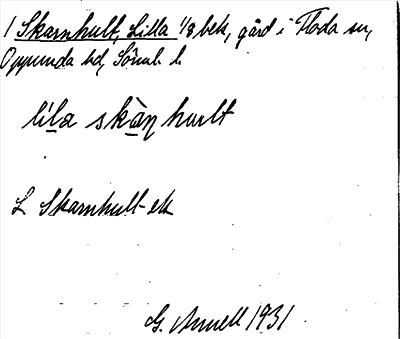 1 Skarnhult, Lilla 1/8 bek, gård i Floda sn,
Oppunda hd, Söml. l.
lila skàn hult
L Skarnhult ek
G. Annell 1931